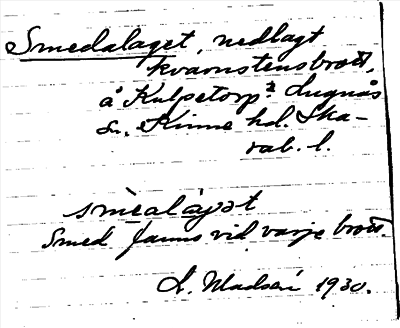 Smedalaget, nedlagt
kvarnstensbrott,
å Kulpetorps Lugnås
sn, Kinne hd. Ska-
rab. l.
smèalagət
Smed fanns vid varje brott.
1930.